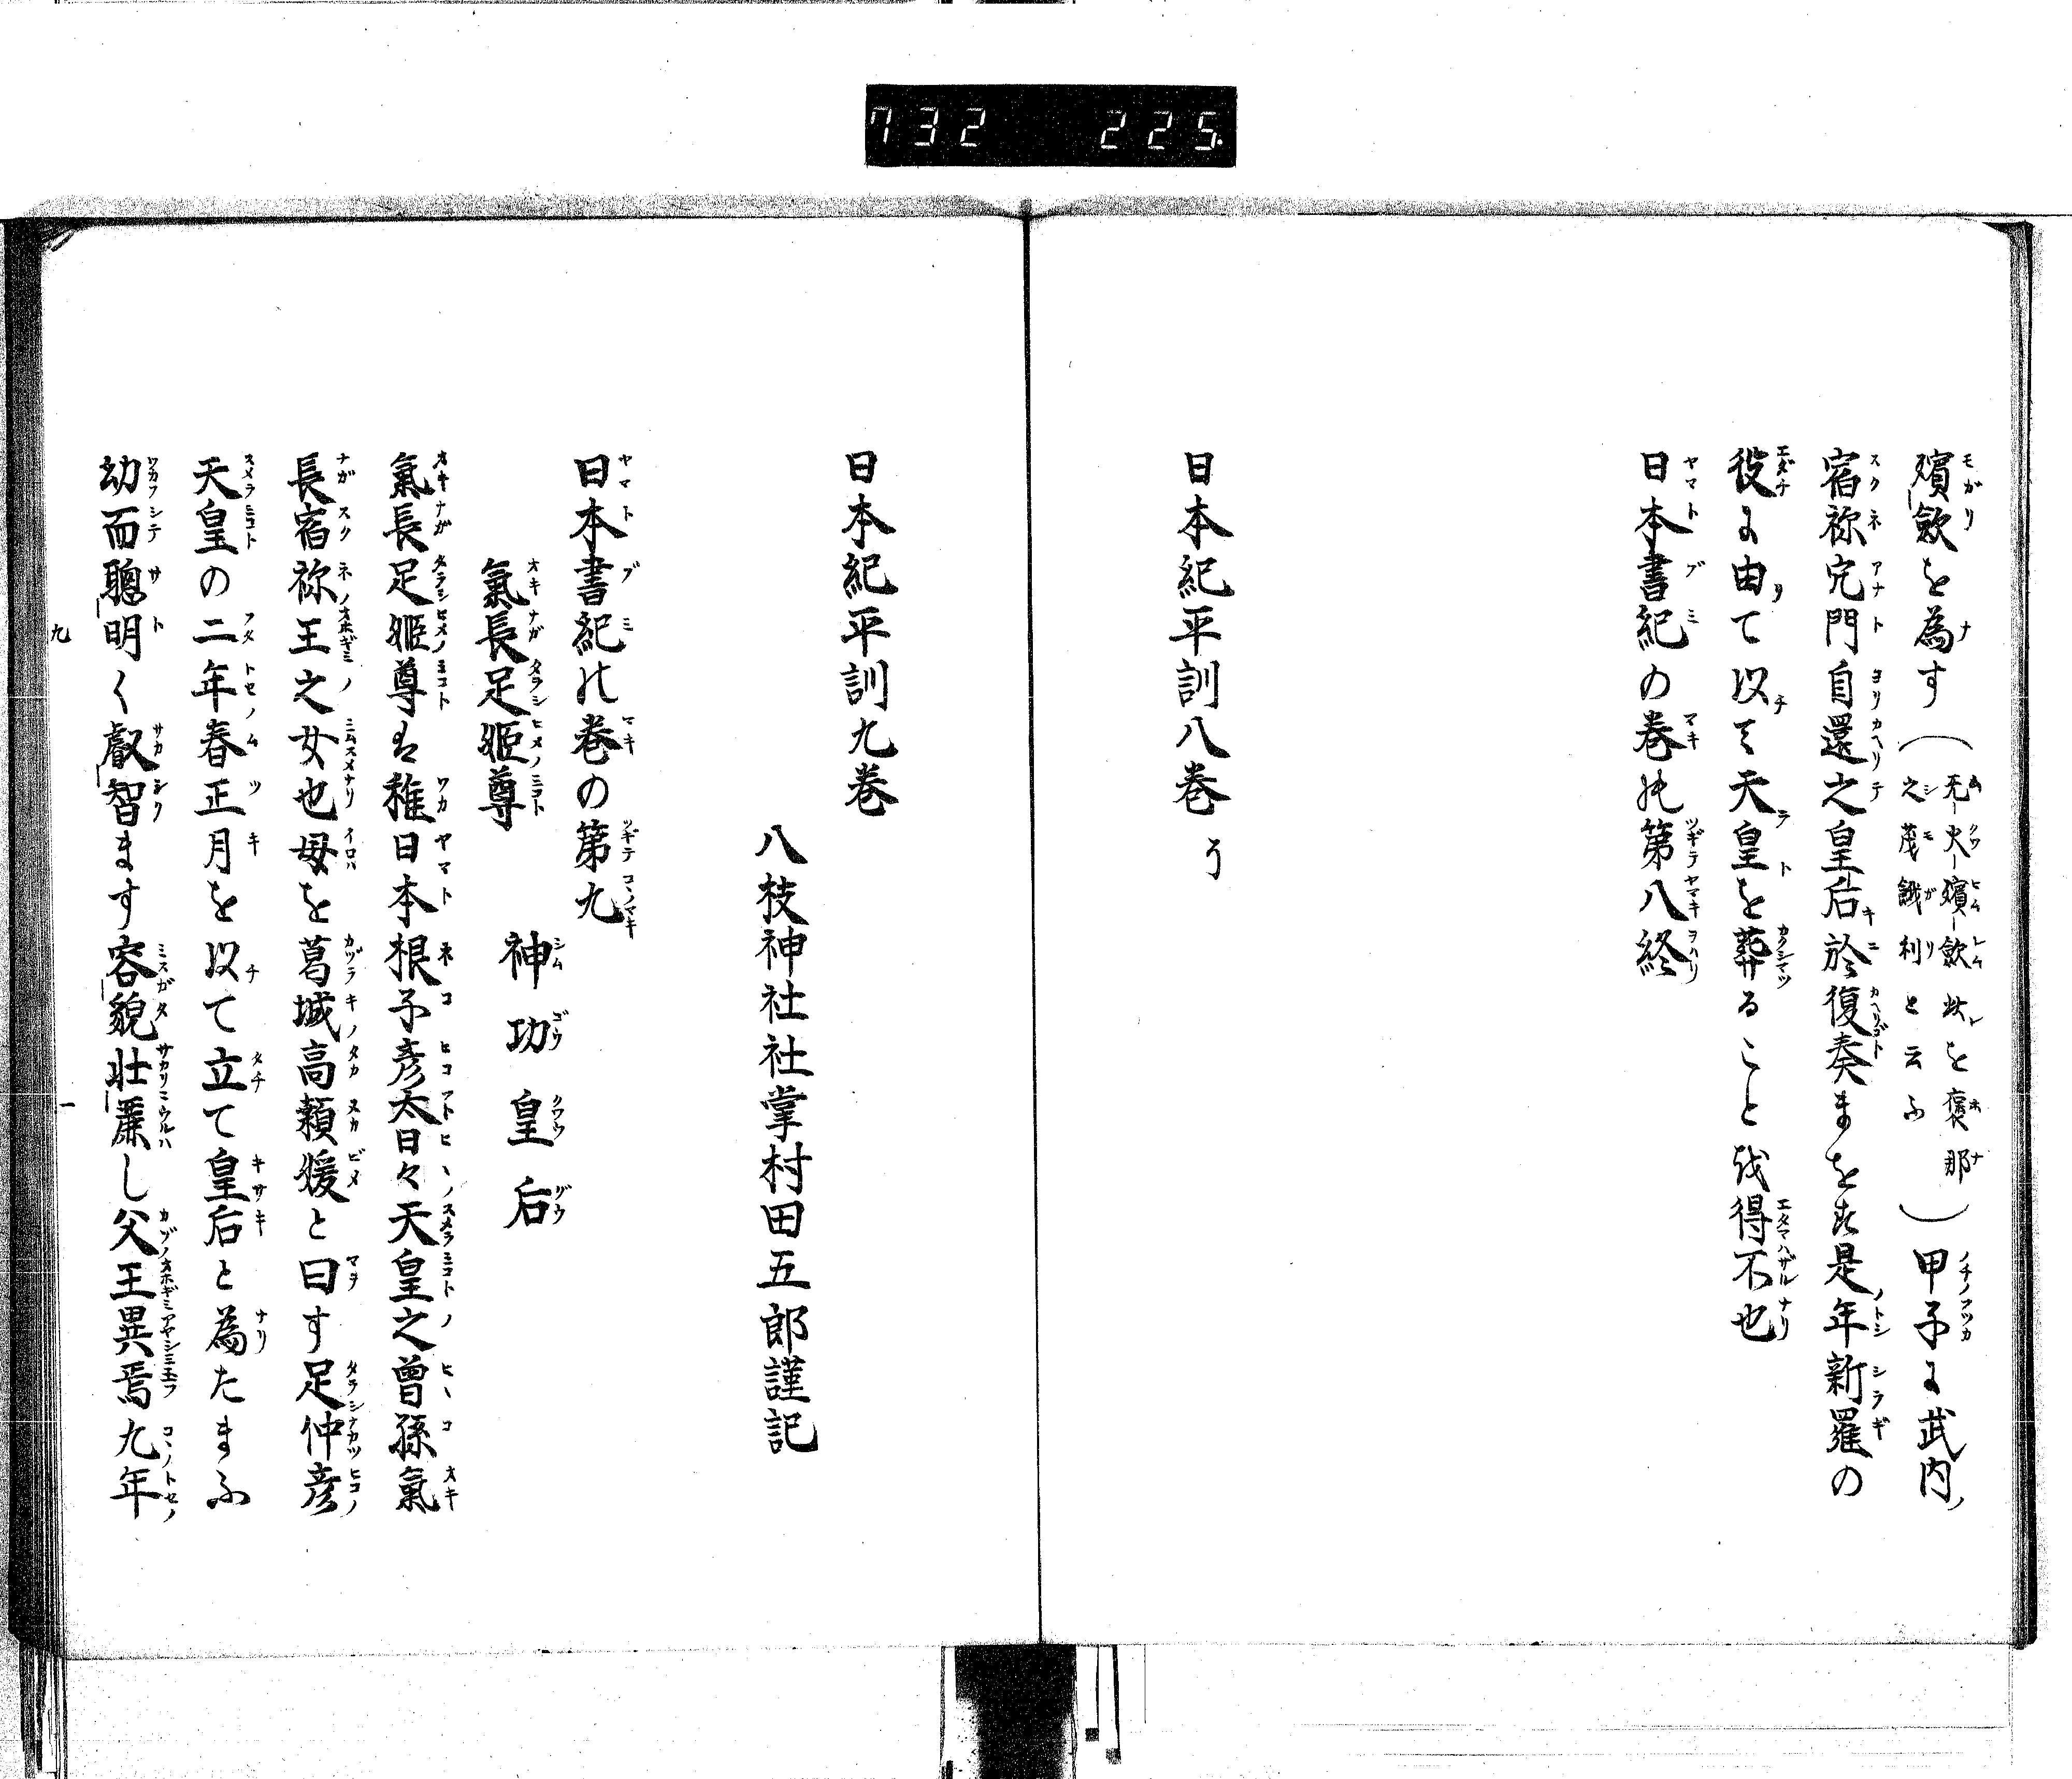 732 225
殯歛を為す（无火殯歛此を褒那之茂餓利と云ふ）甲子に武内
宿祢宍門自還之皇后於復奏まをす是年新羅の
役に由て以て天皇を葬ること得不也
日本書紀の巻第八終
日本紀平訓八巻
日本紀平訓九巻
八枝神社社掌村田五郎謹記
日本書紀の巻の第九
氣長足姫尊 神功皇后
氣長足姫尊は稚日本根子彦太日々天皇之曽孫氣
長宿祢王之女也母を葛城高顙媛と曰す足仲彦
天皇の二年春正月を以て立て皇后と為たまふ
幼而聰明く叡智ます容貌壮麗し父王異焉九年
九
一